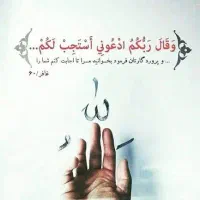 وَقَالَ رَبُّكُمُ ادْعُونِي أَسْتَجِبْ لَكُمْ...
... و پروردگارتان فرمود بخوانید مرا تا اجابت کنم شما را
غافر/۶۰
الله